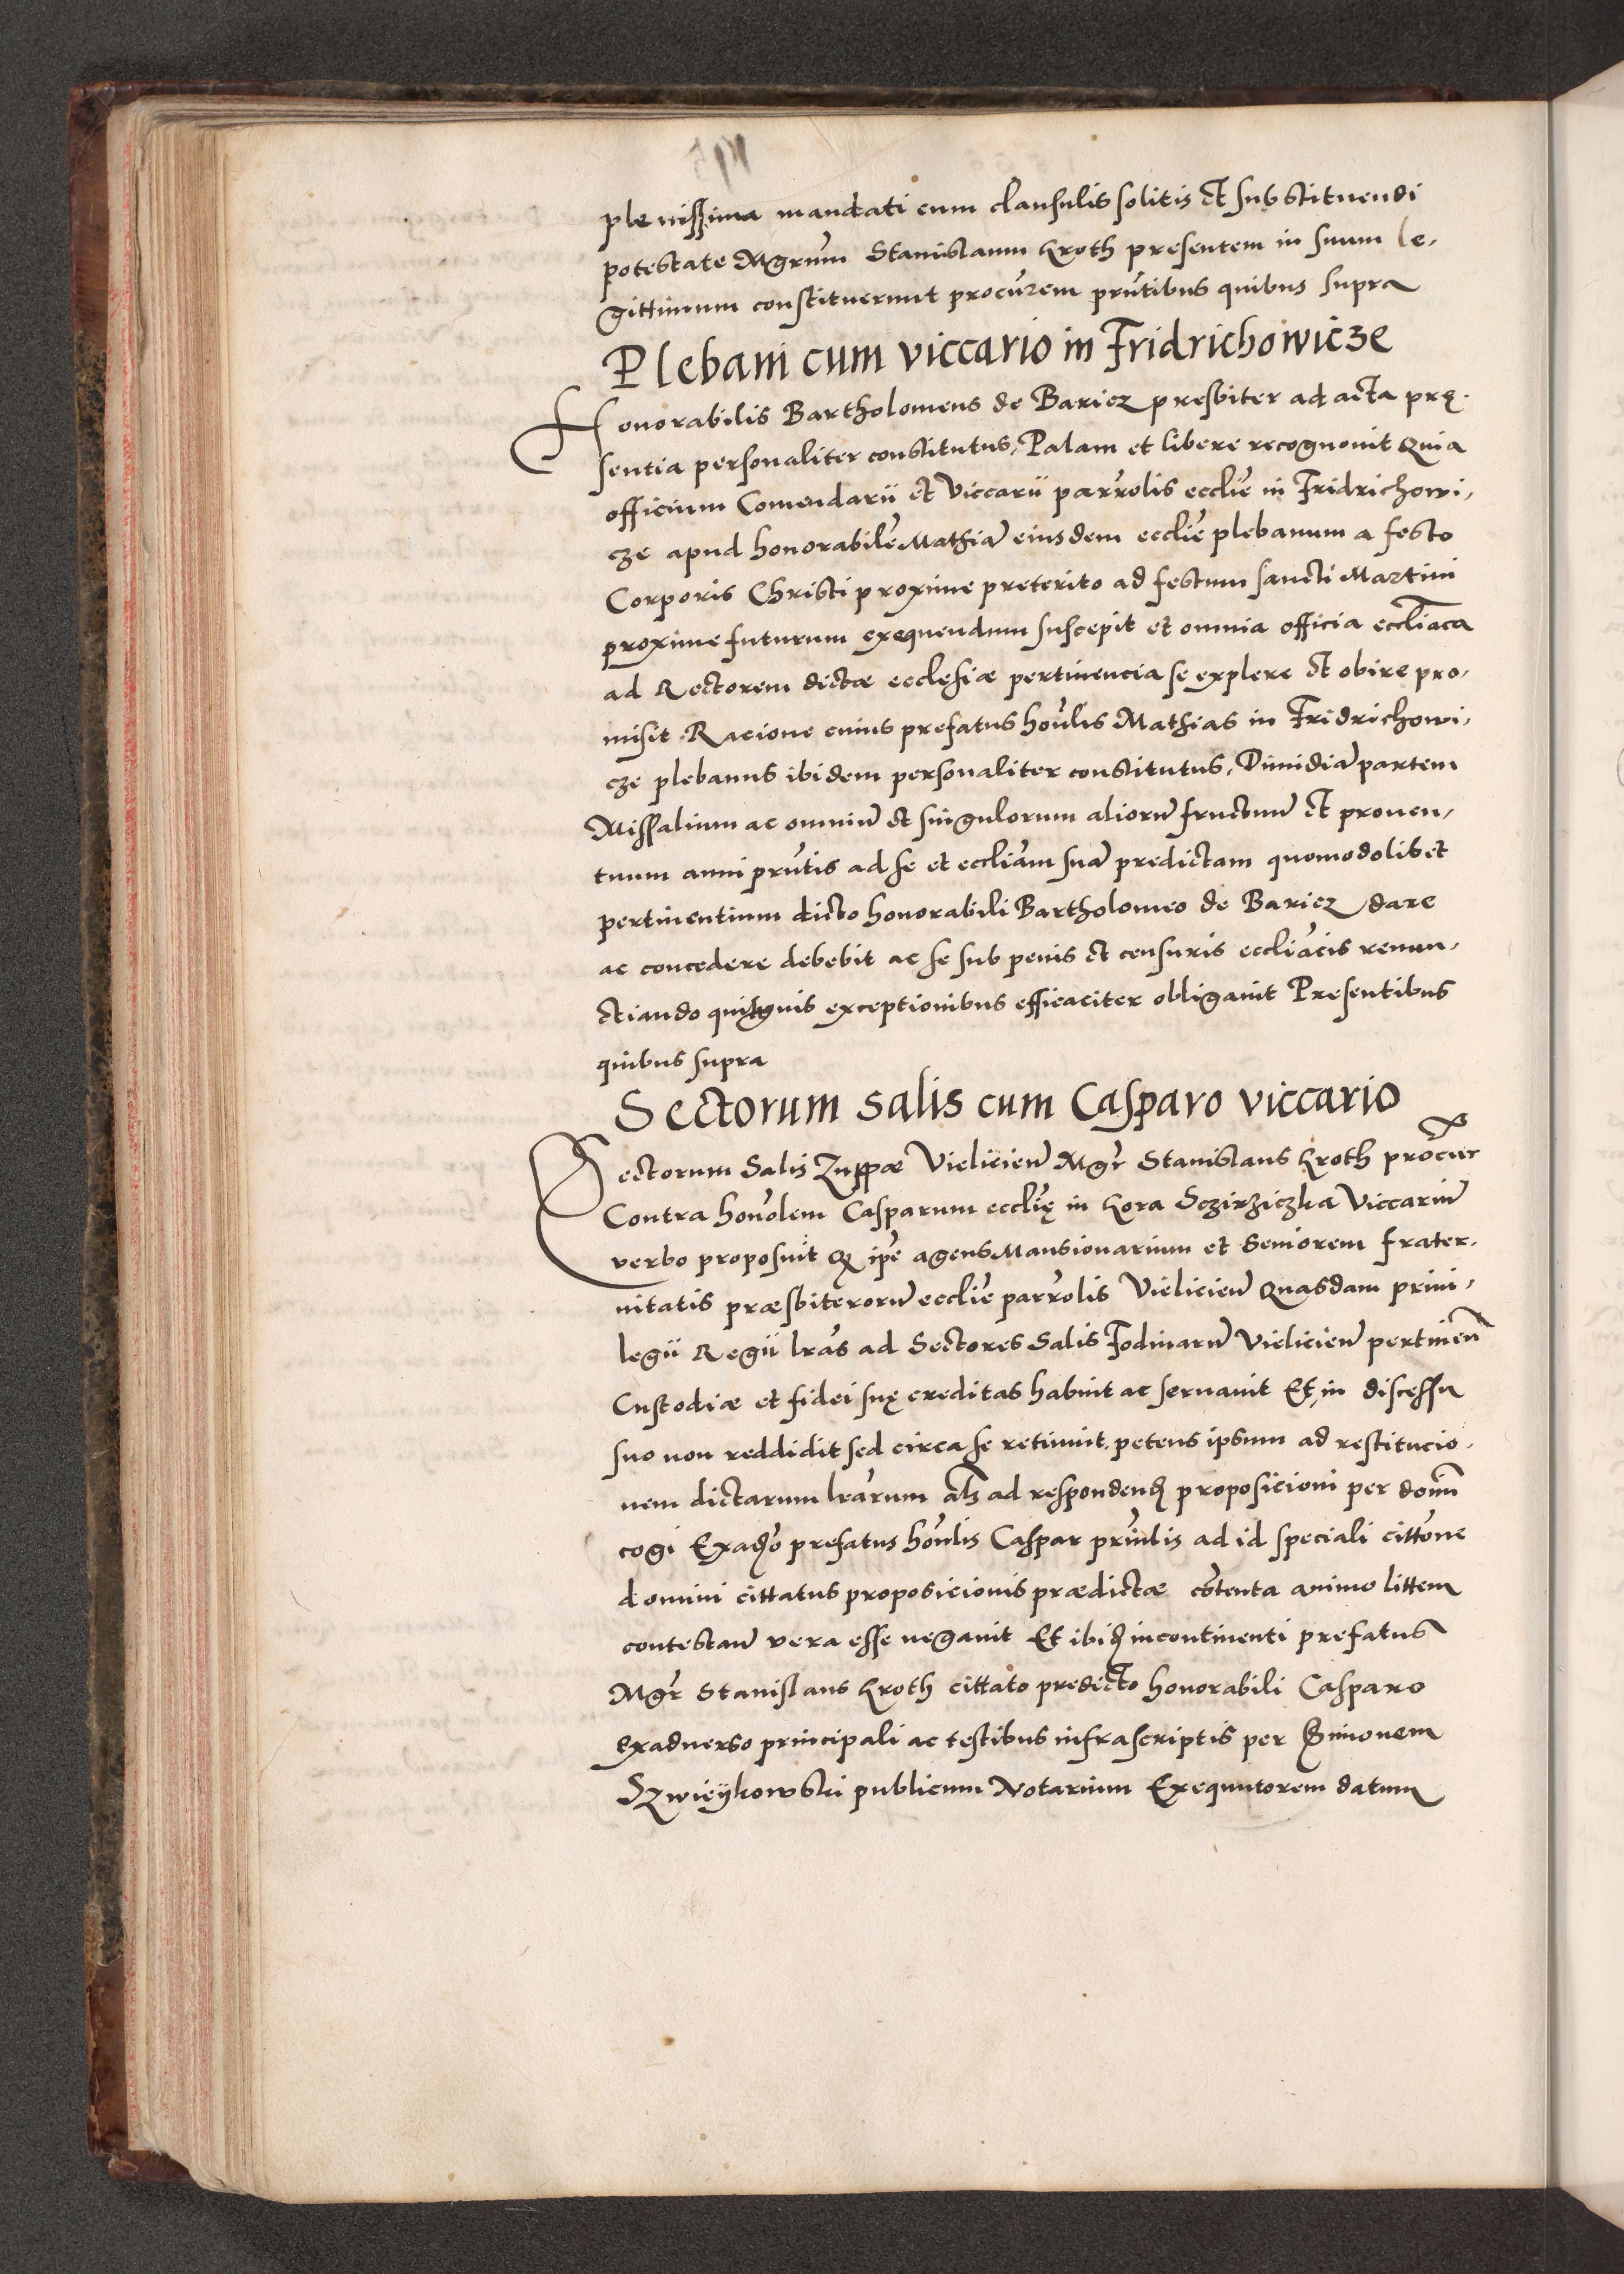 plenissima mandati cum clausulis solitis et substituendi
potestate Mgrum Stanislaum Kroth presentem in suum le-
gittimum constituerunt procurem pntibus quibus supra
Plebani cum viccario in Fridrichowicze
Honorabilis Bartholomeus de Baricz presbiter ad acta prę-
sentia personaliter constitutus, Palam et libere recognouit Quia
officium Comendarii et Viccarii parrolis ecclie in Fridrichowi-
cze apud honorabile Mathia eiusdem ecclie plebanum a festo
Corporis Christi proxime preterito ad festum sancti Martini
proxime futurum exequendum suscepit et omnia officia eccliaca
ad Rectorem dictæ ecclesiæ pertinencia se explere et obire pro-
misit. Racione cuius prefatus honlis Mathias in Fridrichowi-
cze plebanus ibidem personaliter constitutus, Dimidia partem
Missalium ac omniu et singulorum alioru fructuu et prouen-
tuum anni pntis ad se et eccliam sua predictam quomodolibet
pertinentium dicto honorabili Bartholomeo de Baricz dare
ac concedere debebit ac se sub penis et censuris eccliacis renun-
ctiando quibusuis exceptionibus efficaciter obligauit Presentibus
quibus supra
Sectorum salis cum Casparo viccario
Sectorum Salis Zuppæ Vielicien Mgr Stanislaus Kroth procur
Contra honolem Casparum ecclię in Gora Sczirziczka Viccariu
verbo proposuit Q ipe agens Mansionarium et Seniorem frater-
nitatis præsbiteroru ecclie parrolis Vielicien Quasdam priui-
legii Regii lras ad Sectores Salis Fodinaru Vielicien pertinen
Custodiæ et fidei suę creditas habuit ac seruauit Et in discessu
suo non reddidit sed circa se retinuit petens ipsum ad restitucio-
nem dictarum lrarum als ad respondend proposicioni per domi
cogi Exaduo prefatus honlis Caspar prinlis ad id speciali cittone
domini cittatus proposicionis prædictæ cotenta animo littem
contestan vera esse negauit Et ibid incontinenti prefatus
Mgr Stanislaus Kroth cittato predicto honorabili Casparo
exaduerso principali ac testibus infrascriptis per Simonem
Szwieykowski publicum Notarium Exequutorem datum